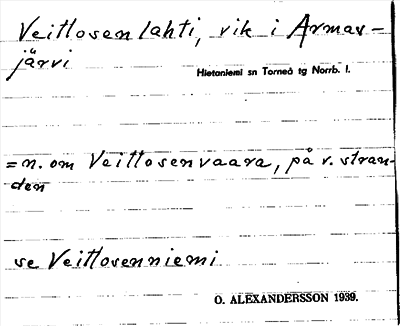 Veitlosenlahti, vik i Armas-
järvi
Hietaniemi sn Torneå tg Norrb. l.
= n. om Veitlosenvaara, på v. stran-
den
se Veitlosenniemi
O. ALEXANDERSSON 1939.